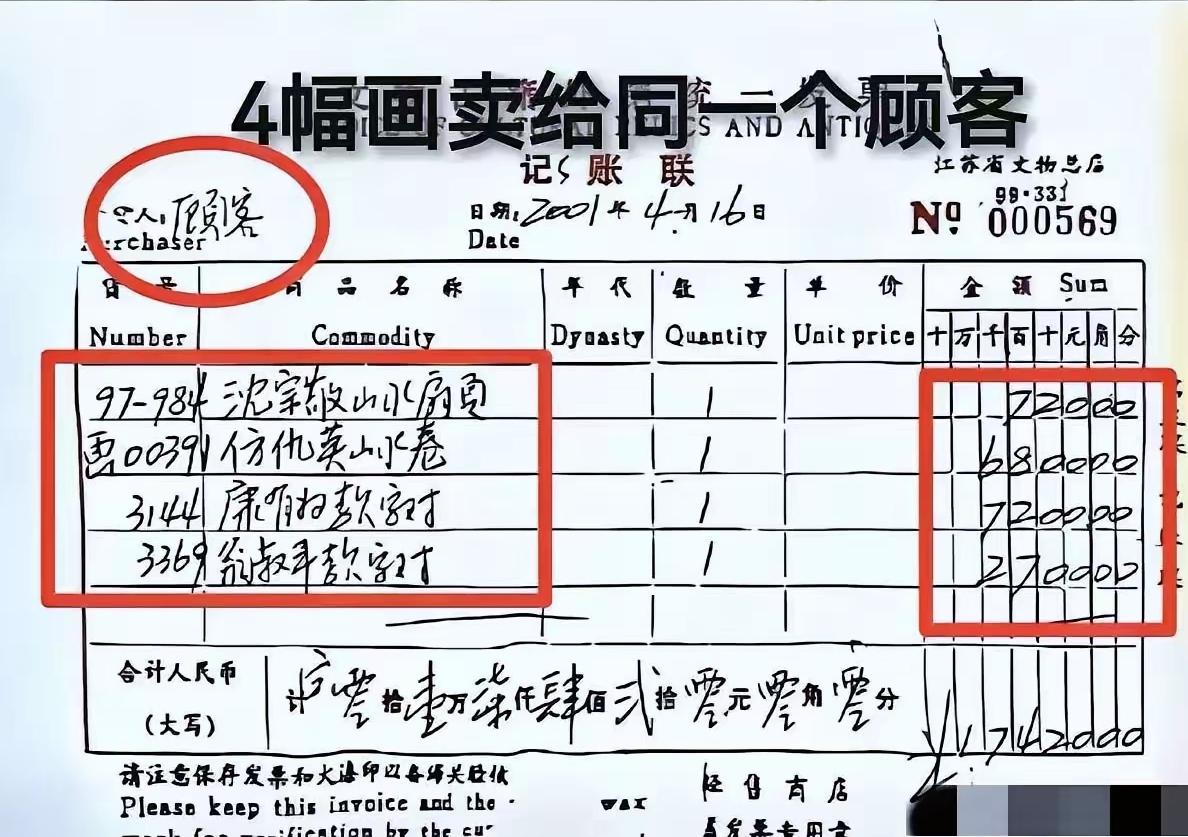 4幅画卖给同一个顾客
记账联
江苏省文物总店
99·331
人:顾客
日期:2001年4月16日
Purchaser
Date
Nº 000569
商品名称 年代 数量 单价 金额 Sum
Number Commodity Dynasty Quantity Unit price 十万千百十元角分
97-984 沈宗敬山水扇页 1 72000
画00391 仿仇英山水卷 1 680000
3144 康有为款字对 1 720000
3369 翁叔平款字对 1 270000
合计人民币
(大写)
零拾壹万柒仟肆佰贰拾零元零角零分 ¥1742000
请注意保存发票和火漆印以备海关验放
Please keep this invoice and the
wax
经售商店
发票专用章